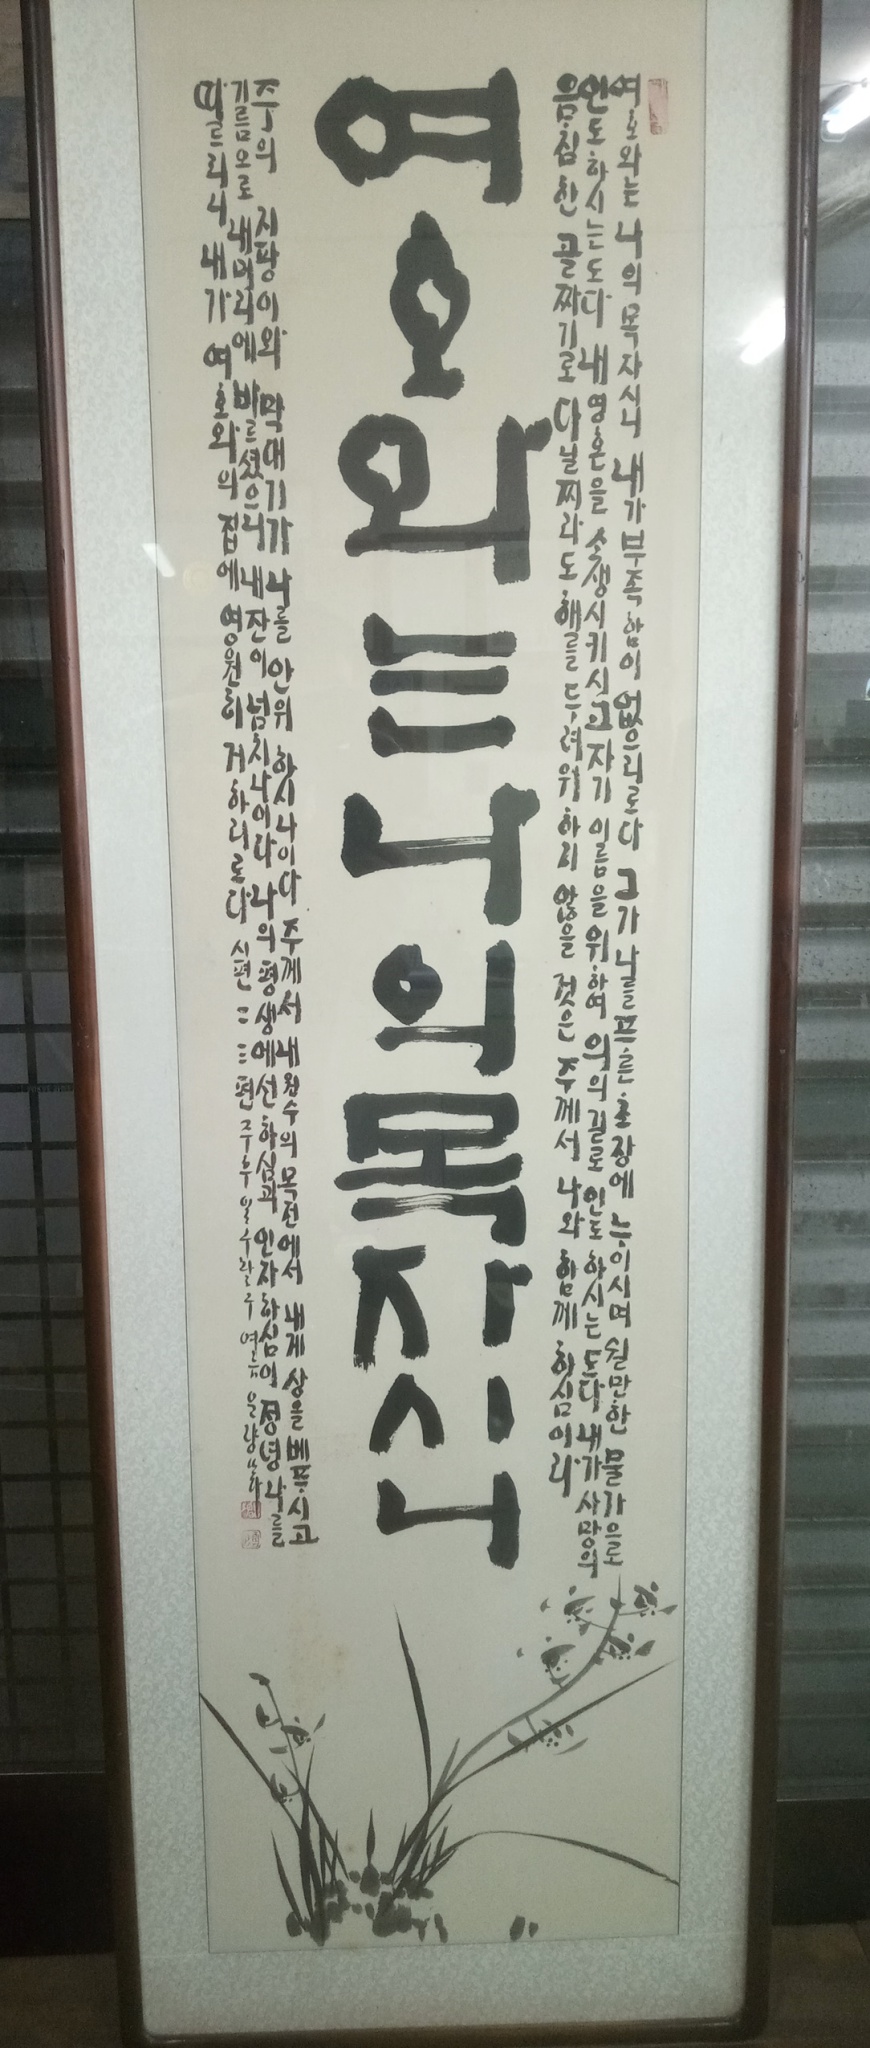 여호와는 나의 목자시니 내가 부족함이 없으리로다 그가 나를 푸른 초장에 누이시며 쉴만한 물가으로
인도하시는도다 내 영혼을 소생시키시고 자기 이름을 위하여 의의 길로 인도하시는도다 내가 사망의
음침한 골짜기로 다닐찌라도 해를 두려워하지 않을 것은 주께서 나와 함께 하심이라
여호와는 나의 목자시니
주의 지팡이와 막대기가 나를 안위하시나이다 주께서 내 원수의 목전에서 내게 상을 베푸시고
기름으로 내 머리에 바르셨으니 내 잔이 넘치나이다 나의 평생에 선하심과 인자하심이 정녕 나를
따르리니 내가 여호와의 집에 영원히 거하리로다 시편 二三편